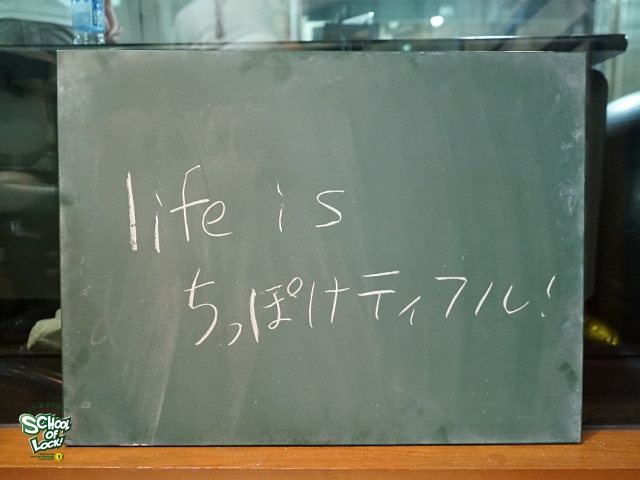 life is
ちっぽけティフル!
SCHOOL
OF
LOCK!